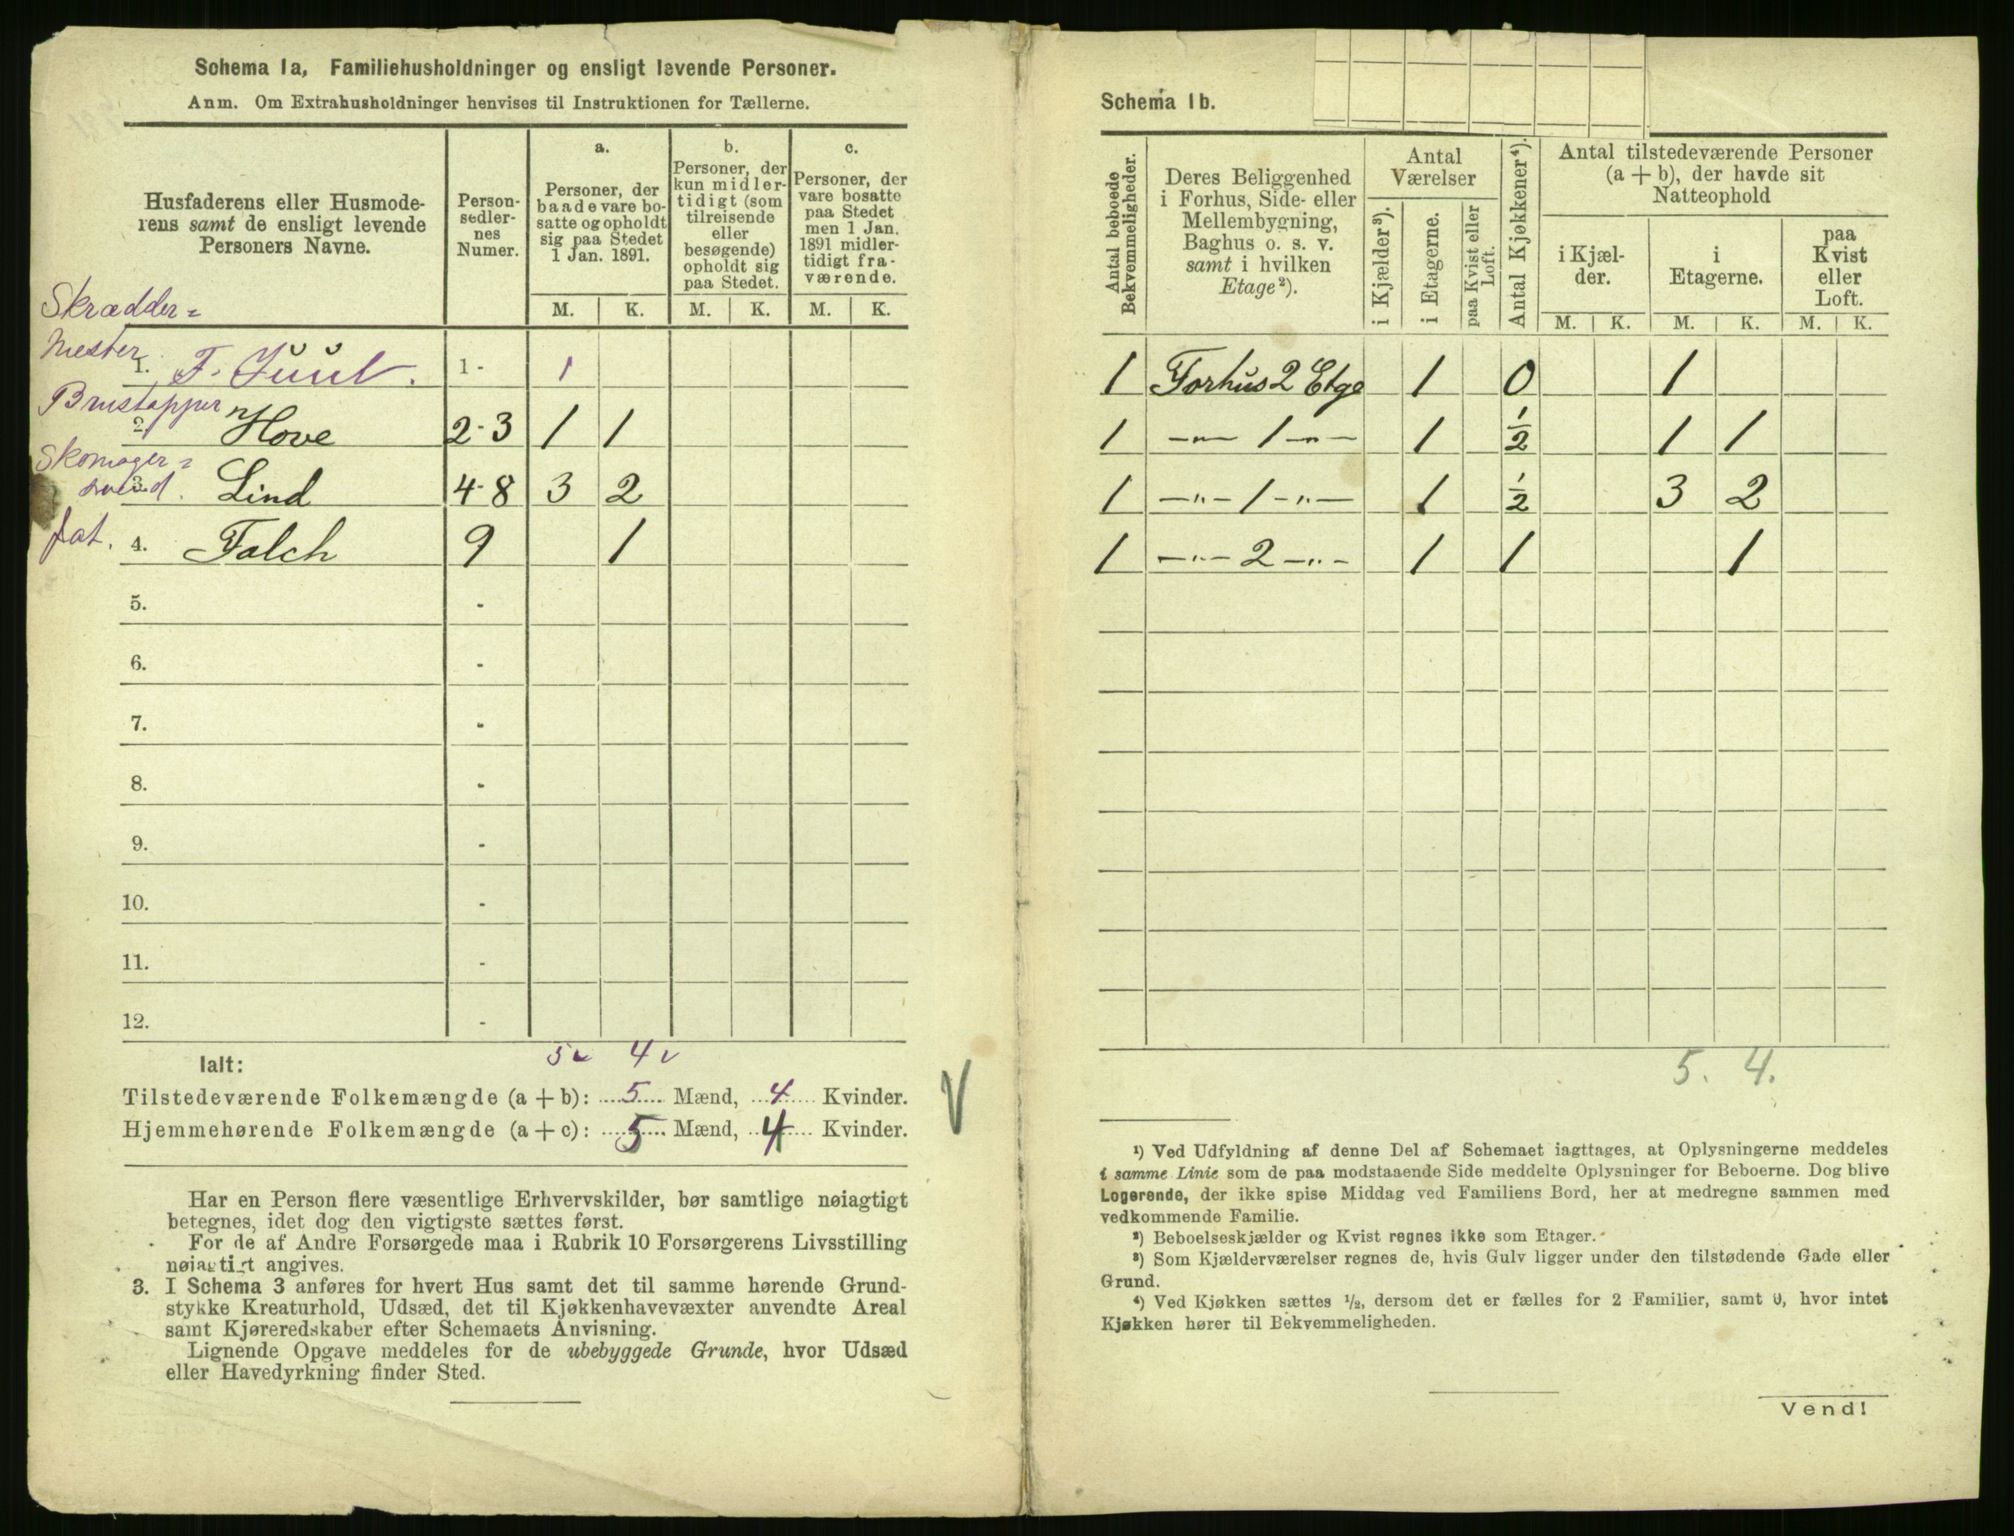 Schema 1a, Familiehusholdninger og ensligt levende Personer.
Anm. Om Extrahusholdninger henvises til Instruktionen for Tællerne.
Husfaderens eller Husmode-
rens samt de ensligt levende
Personers Navne.
Person-
sedler-
nes
Numer.
a.
Personer, der
baade vare bo-
satte og opholdt
sig paa Stedet
1 Jan. 1891.
b.
Personer, der
kun midler-
tidigt (som
tilreisende
eller
besøgende)
opholdt sig
paa Stedet.
c.
Personer, der
vare bosatte
paa Stedet
men 1 Jan.
1891 midler-
tidigt fra-
værende.
M. K. M. K. M. K.
Skrædder=
Mester
1. F. Juul. 1 - 1
2. Hove 2-3 1 1
Skomager=
svend.
3. Lind 4-8 3 2
fat. 4. Falch 9 1
5. -
6. -
7. -
8. -
9. -
10. -
11. -
12. -
Ialt: 5 4
Tilstedeværende Folkemængde (a + b): 5 Mænd, 4 Kvinder.
Hjemmehørende Folkemængde (a + c): 5 Mænd, 4 Kvinder.
Har en Person flere væsentlige Erhvervskilder, bør samtlige nøiagtigt
betegnes, idet dog den vigtigste sættes først.
For de af Andre Forsørgede maa i Rubrik 10 Forsørgerens Livsstilling
nøiagtigt angives.
3. I Schema 3 anføres for hvert Hus samt det til samme hørende Grund-
stykke Kreaturhold, Udsæd, det til Kjøkkenhavevæxter anvendte Areal
samt Kjøreredskaber efter Schemaets Anvisning.
Lignende Opgave meddeles for de ubebyggede Grunde, hvor Udsæd
eller Havedyrkning finder Sted.
Schema 1b.
Antal beboede
Bekvemmeligheder.
Deres Beliggenhed
i Forhus, Side- eller
Mellembygning,
Baghus o. s. v.
samt i hvilken
Etage²).
Antal
Værelser
i Kjælder³).
i Etagerne.
paa Kvist eller
Loft.
Antal Kjøkkener⁴).
Antal tilstedeværende Personer
(a + b), der havde sit
Natteophold
i Kjæl-
der.
i
Etagerne.
paa
Kvist
eller
Loft.
M. K. M. K. M. K.
1 Forhus 2 Etge 1 0 1
1 -"- 1 -"- 1 1/2 1 1
1 -"- 1 -"- 1 1/2 3 2
1 -"- 2 -"- 1 1 1
5. 4.
¹) Ved Udfyldning af denne Del af Schemaet iagttages, at Oplysningerne meddeles
i samme Linie som de paa modstaaende Side meddelte Oplysninger for Beboerne. Dog blive
Logerende, der ikke spise Middag ved Familiens Bord, her at medregne sammen med
vedkommende Familie.
²) Beboelseskjælder og Kvist regnes ikke som Etager.
³) Som Kjælderværelser regnes de, hvis Gulv ligger under den tilstødende Gade eller
Grund.
⁴) Ved Kjøkken sættes ½, dersom det er fælles for 2 Familier, samt 0, hvor intet
Kjøkken hører til Bekvemmeligheden.
Vend!